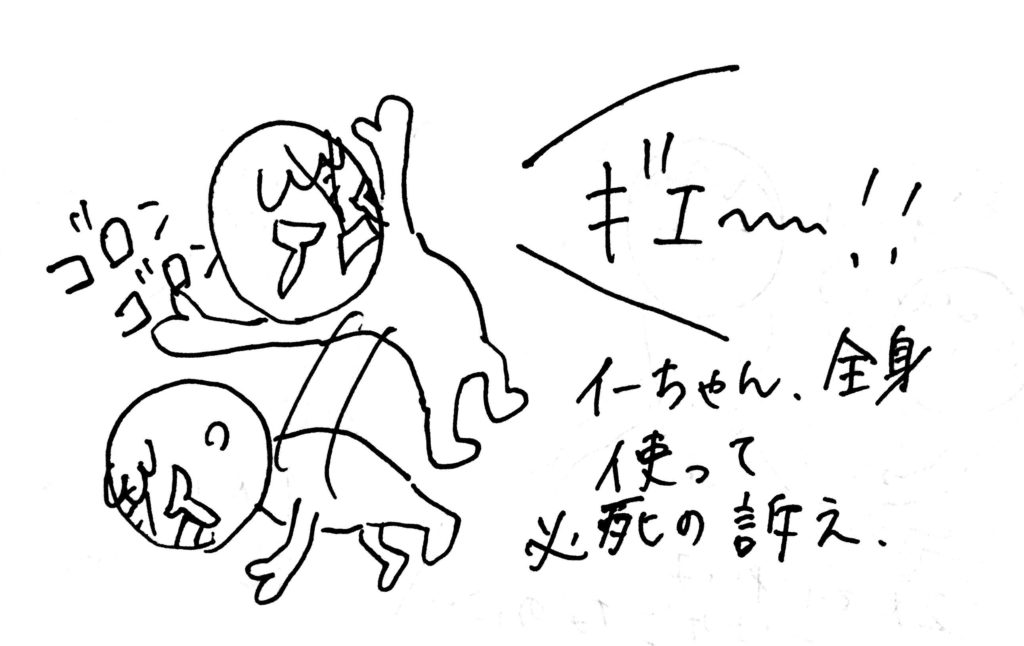 ギエ〜〜!!
ゴロン
ゴロン
イーちゃん、全身
使って
必死の訴え、